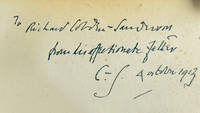 To Richard Cobden-Sanderson
from his affectionate father
C-S October 1917